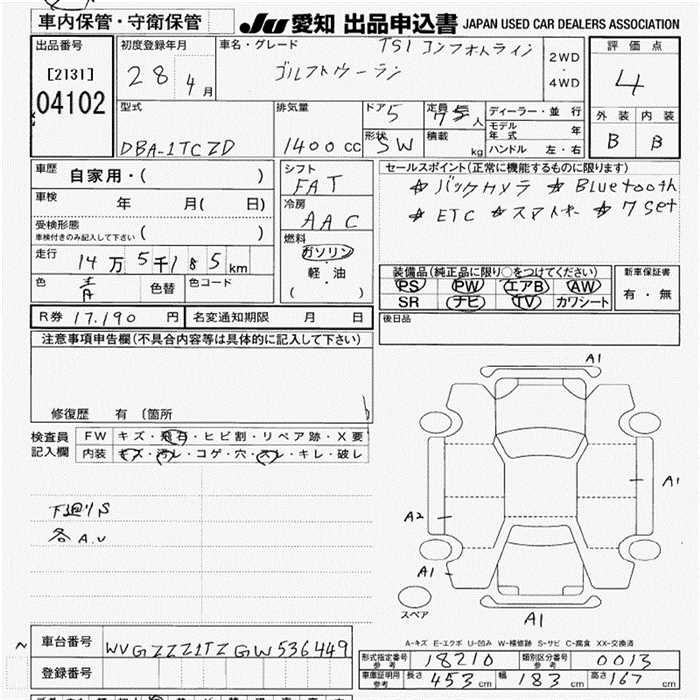 車内保管・守衛保管
JU 愛知 出品申込書 JAPAN USED CAR DEALERS ASSOCIATION
出品番号
[2131]
04102
初度登録年月
28 4月
車名・グレード
TSI コンフォートライン
ゴルフトゥーラン
2WD
・
4WD
評価点
4
外装 内装
B B
型式
DBA-1TCZD
排気量
1400 cc
ドア 5
形状 SW
定員 7 人
積載 kg
ディーラー・並行
モデル年式 年
ハンドル 左・右
車歴
自家用・( )
車検 年 月( 日)
受検形態
車検付きのみ記入して下さい ( )
走行 14万5千185km
色 色替 色コード
シフト
FAT
冷房
AAC
燃料
ガソリン
・
軽・油
( )
セールスポイント(正常に機能するものに限ります)
☆バックカメラ ☆Bluetooth
☆ETC ☆スマートキー ☆7 Set
装備品(純正品に限り○をつけてください)
PS PW エアB AW
SR ナビ TV カワシート
新車保証書
有・無
R券 17,190 円 名変通知期限 月 日
後日品
注意事項申告欄(不具合内容等は具体的に記入して下さい)
修復歴 有 〔箇所
検査員
記入欄
FW キズ・飛石・ヒビ割・リペア跡・X要
内装 キズ・汚レ・コゲ・穴・スレ・キレ・破レ
下廻りS
各A.U
A1
A1
A2
A1
A1
スペア
A-キズ E-エクボ U-凹み W-補修跡 S-サビ C-腐食 XX-交換済
車台番号 WVGZZZ1TZGW536449
登録番号
形式指定番号 参考 18210 類別区分番号 参考 0013
車庫証明用 参考 長さ 453cm 幅 183cm 高さ 167cm